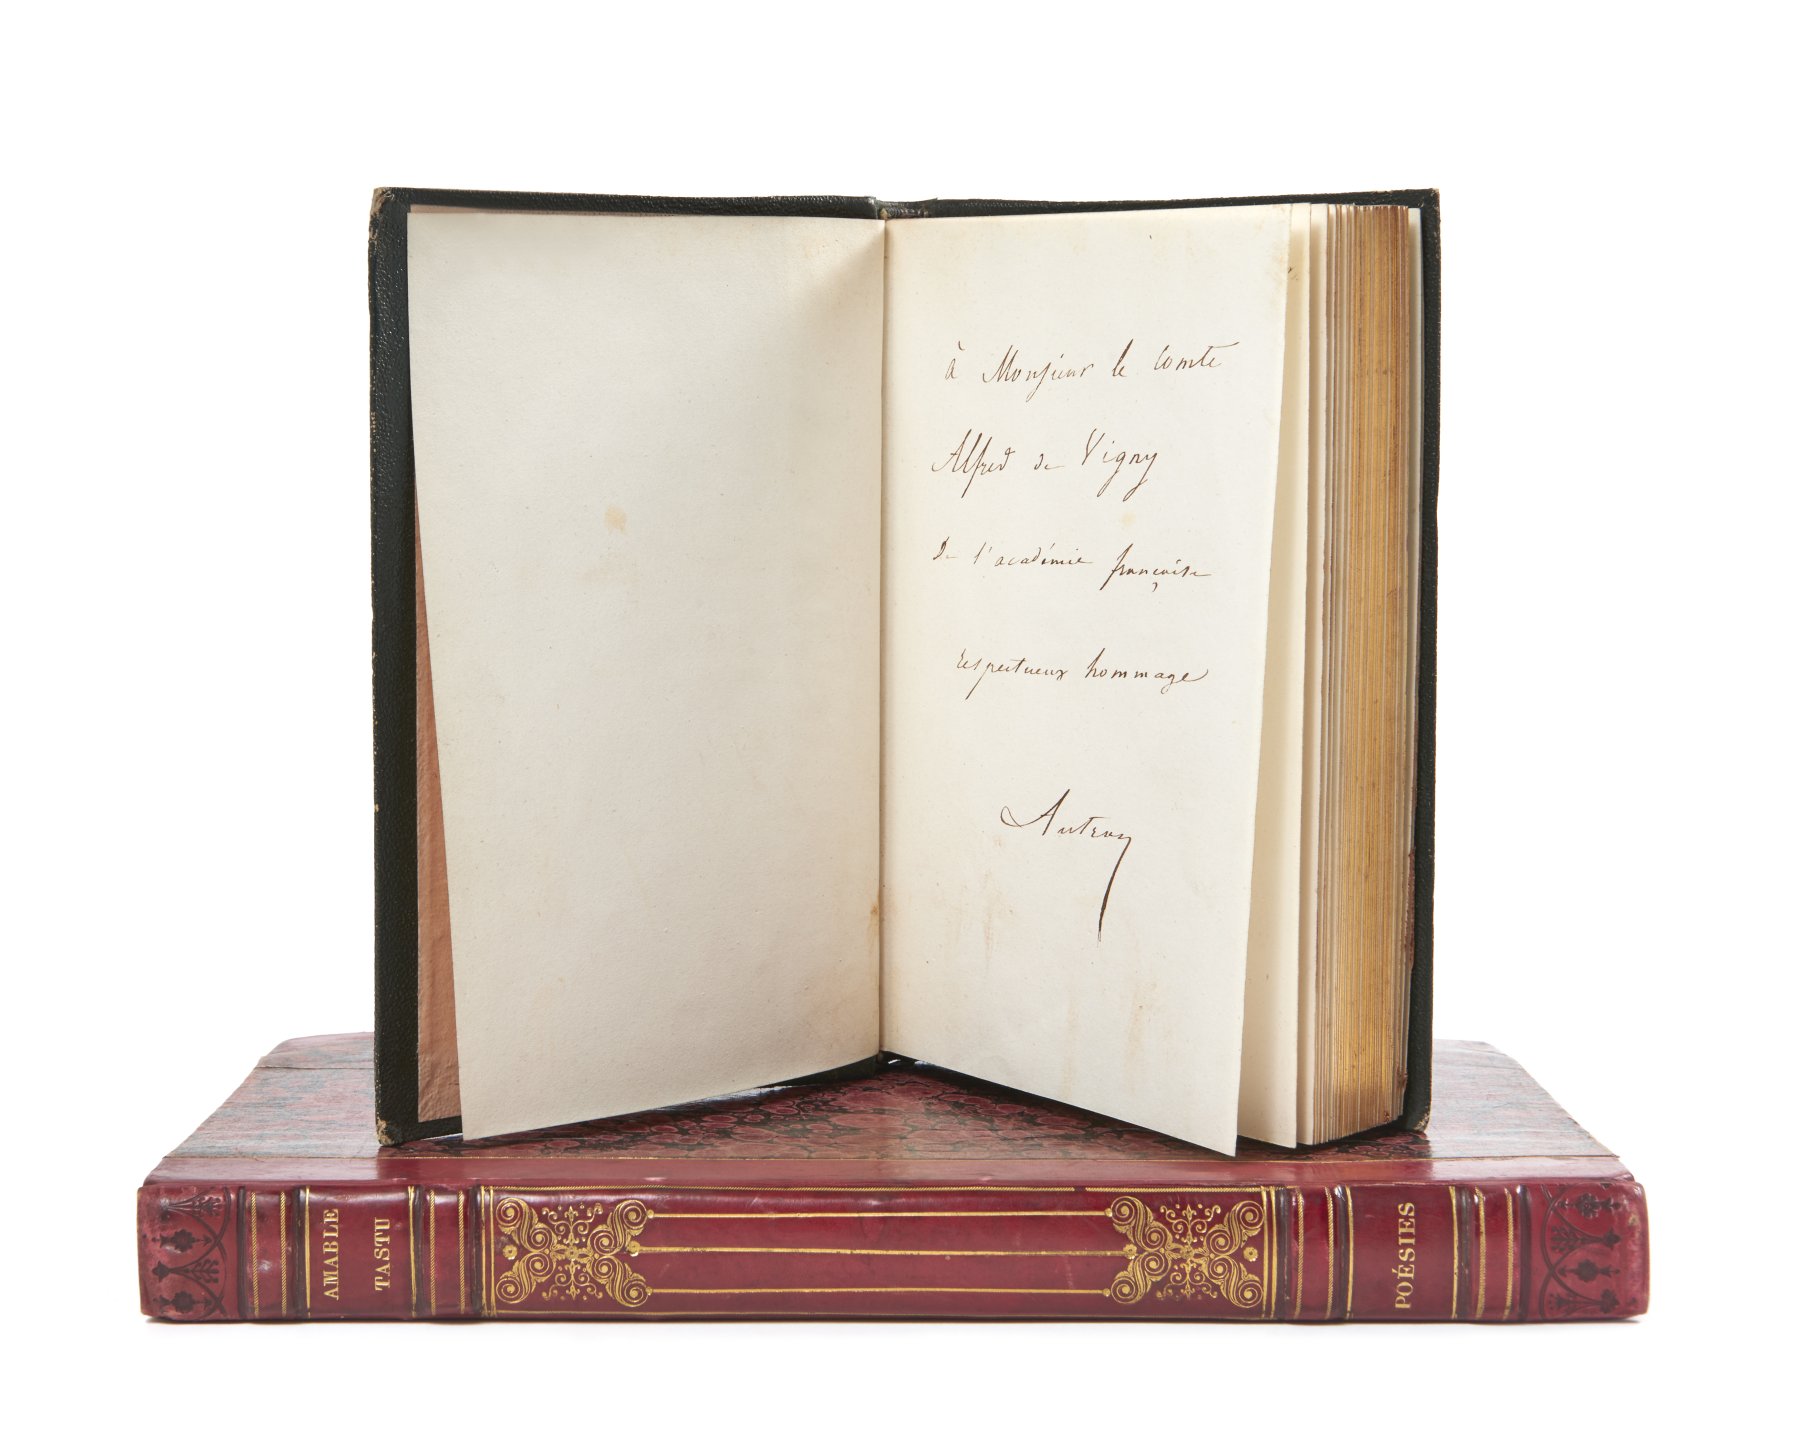 à Monsieur le comte
Alfred de Vigny
de l'académie françaíse
respectueux hommage
Autran
AMABLE
TASTU
POÉSIES